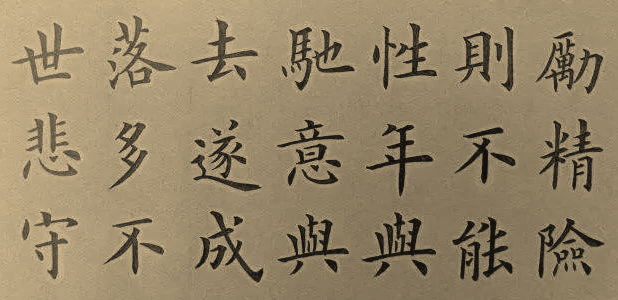 勵精險
則不能
性年與
馳意與
去遂成
落多不
世悲守